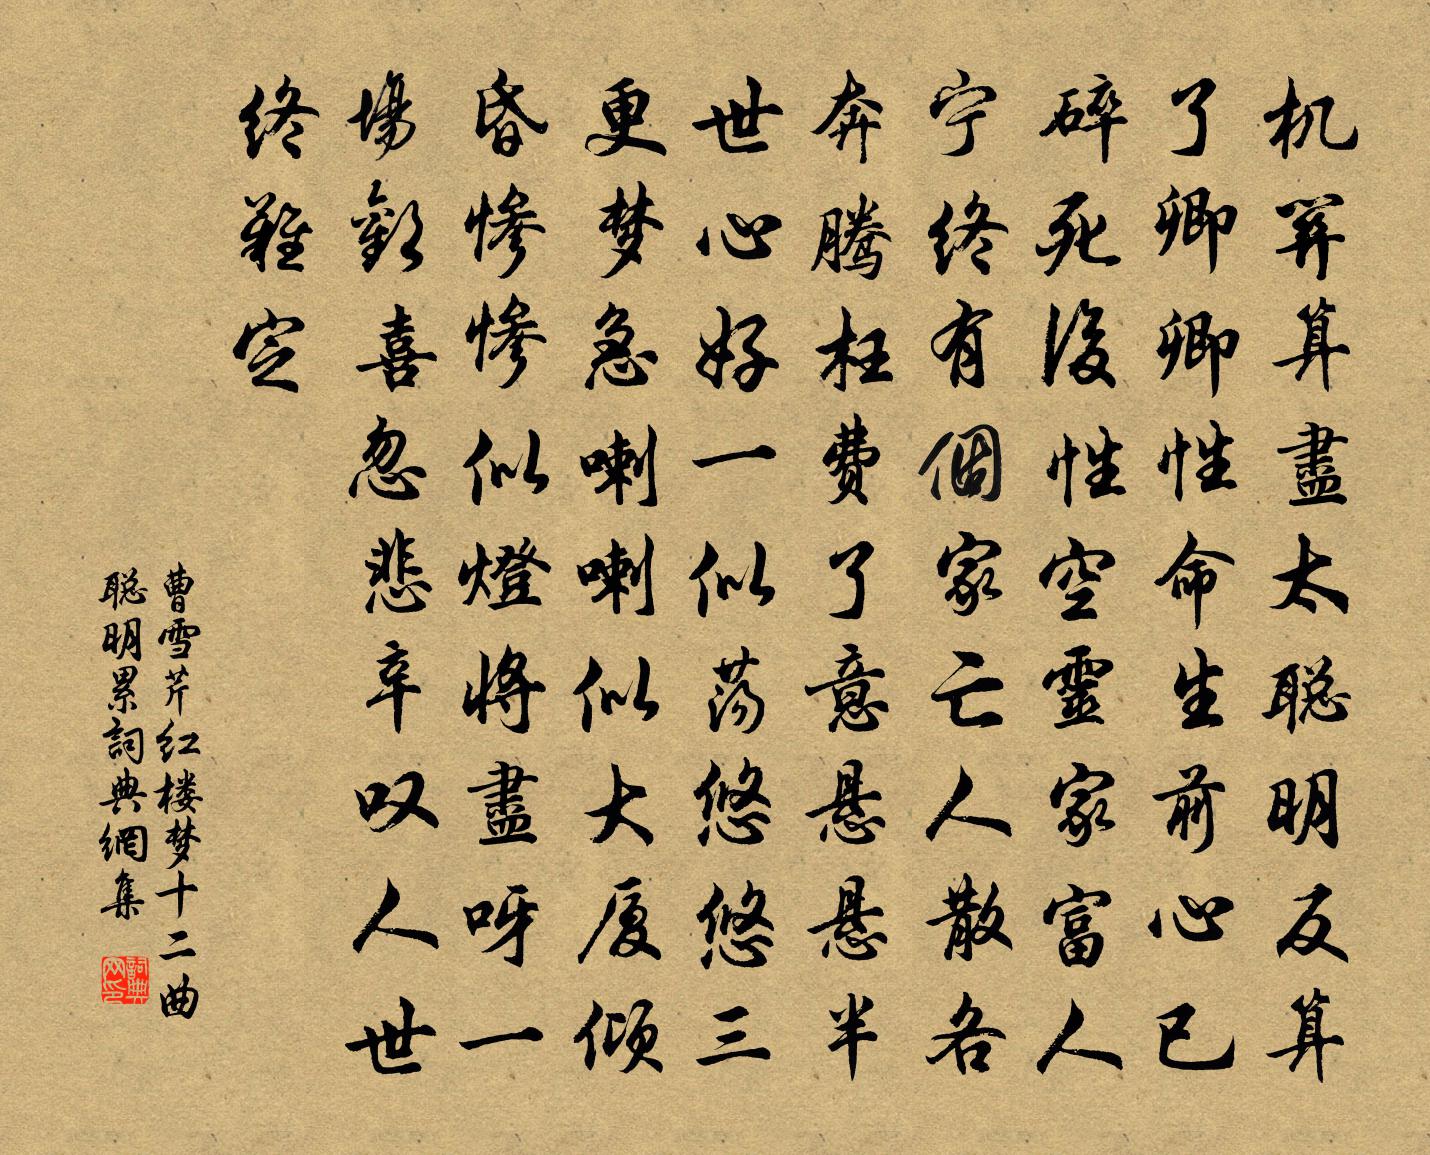 机筭算盡太聪明反算
了卿卿性命生前心已
碎死後性空靈家富人
宁终有個家亡人散各
奔腾枉費了意悬悬半
世心好一似荡悠悠三
更梦急喇喇似大厦倾
昏慘慘似燈將盡呀一
場歡喜忽悲辛叹人世
终難定
曹雪芹红楼梦十二曲
聪明累詞典網集
詞典网印